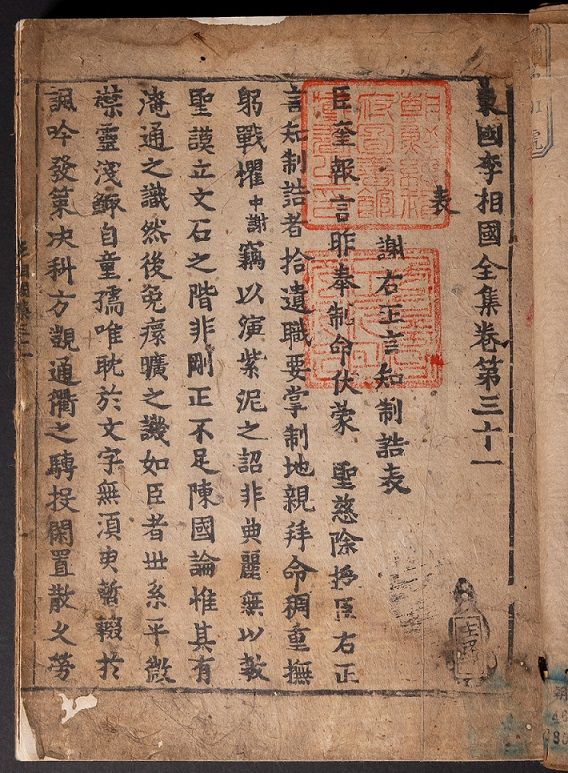 東國李相國全集卷第三十一
表
謝右正言知制誥表
臣奎報言昨奉制命伏蒙 聖慈除授臣右正
言知制誥者拾遺職要掌制地親拜命稠重撫
躬戰懼中謝竊以演紫泥之詔非典麗無以敷
聖謨立文石之階非剛正不足陳國論惟其有
淹通之識然後免瘝曠之譏如臣者世系平微
襟靈淺鯫自童孺唯耽於文字無須臾暫輟於
諷吟發策决科方觀通衢之騁投閑置散久勞
朝鮮總督府圖書館藏書之印